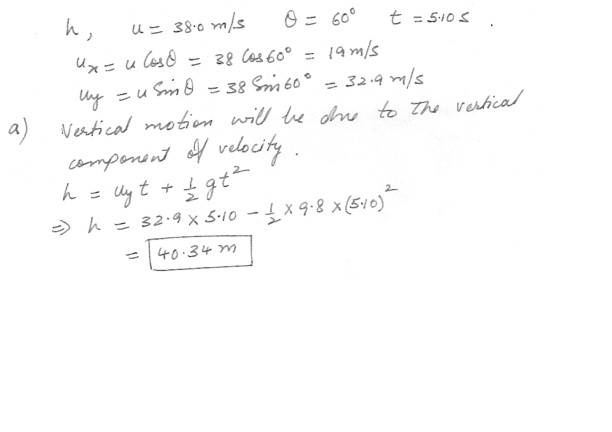 h, u = 38.0 m/s θ = 60° t = 5.10 s .
ux = u Cosθ = 38 Cos 60° = 19 m/s
uy = u Sinθ = 38 Sin 60° = 32.9 m/s
a) Vertical motion will be due to the vertical
component of velocity .
h = uy t + 1/2 gt²
⇒ h = 32.9 × 5.10 − 1/2 × 9.8 × (5.10)²
= 40.34 m